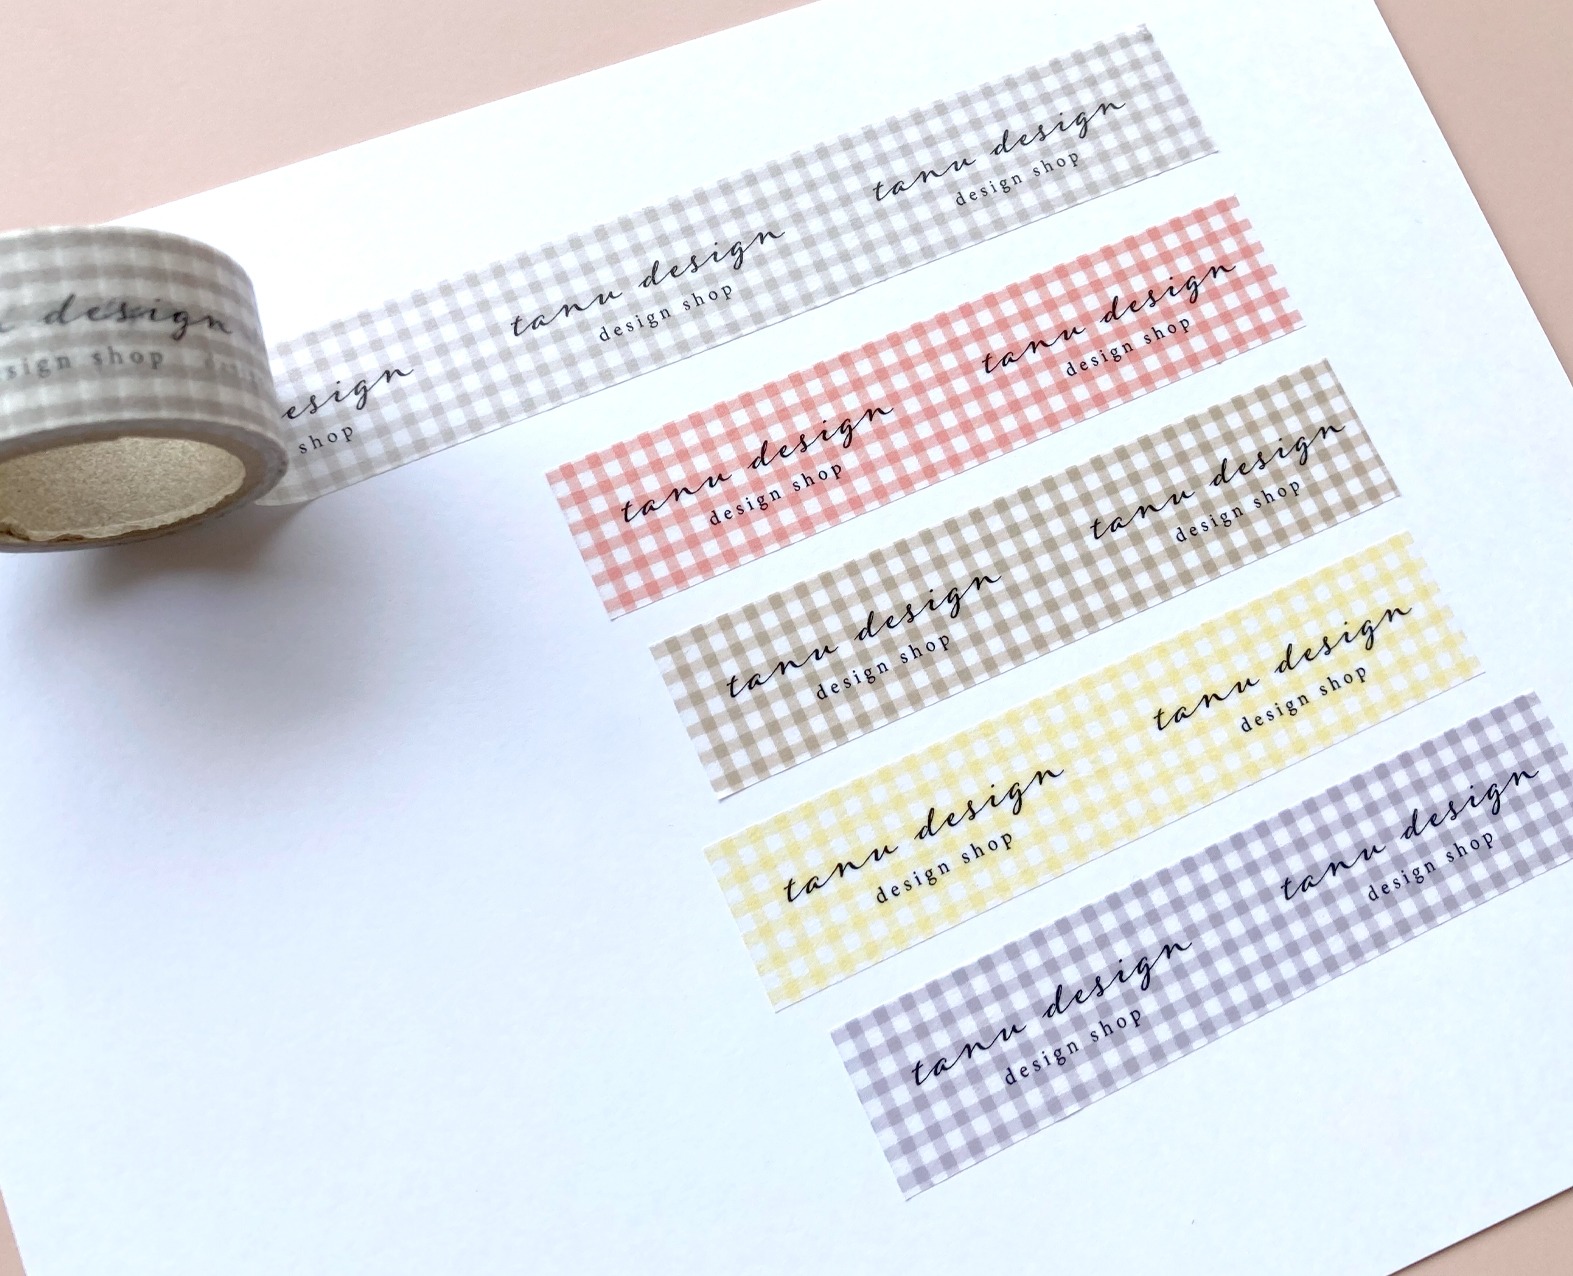 tanu design
design shop
tanu design
design shop
esign
shop
design
sign shop
tanu design
design shop
tanu design
design shop
tanu design
design shop
tanu design
design shop
tanu design
design shop
tanu design
design shop
tanu design
design shop
tanu design
design shop